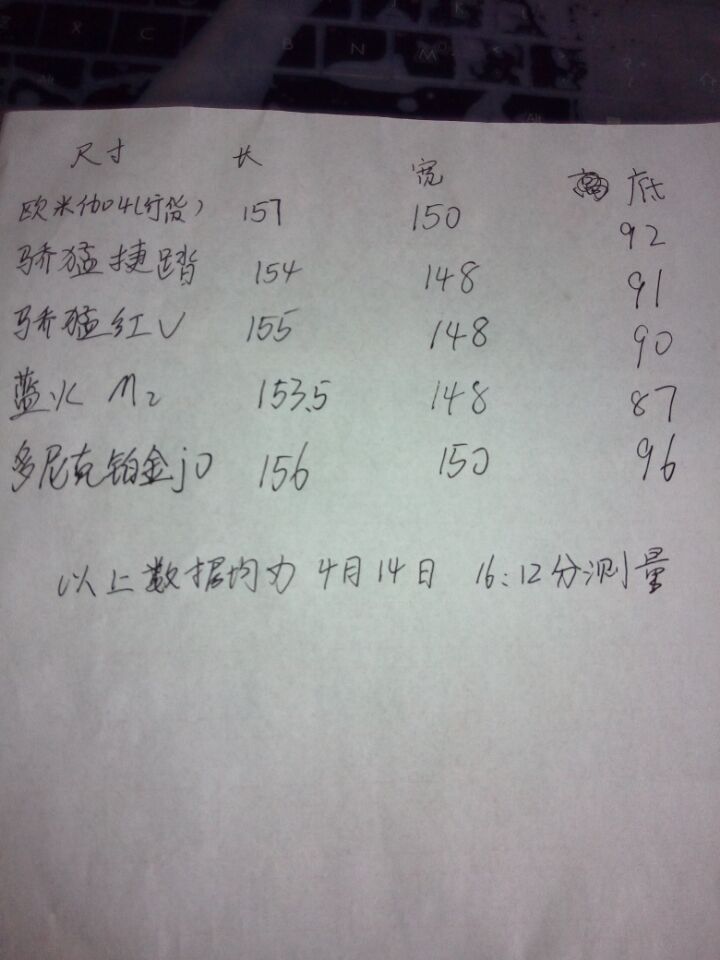 尺寸 长 宽 底
欧米伽04(行货) 157 150 92
骄猛捷踏 154 148 91
骄猛红V 155 148 90
蓝火 M2 153.5 148 87
多尼克铂金j0 156 150 96
以上数据均为 4月14日 16:12分测量